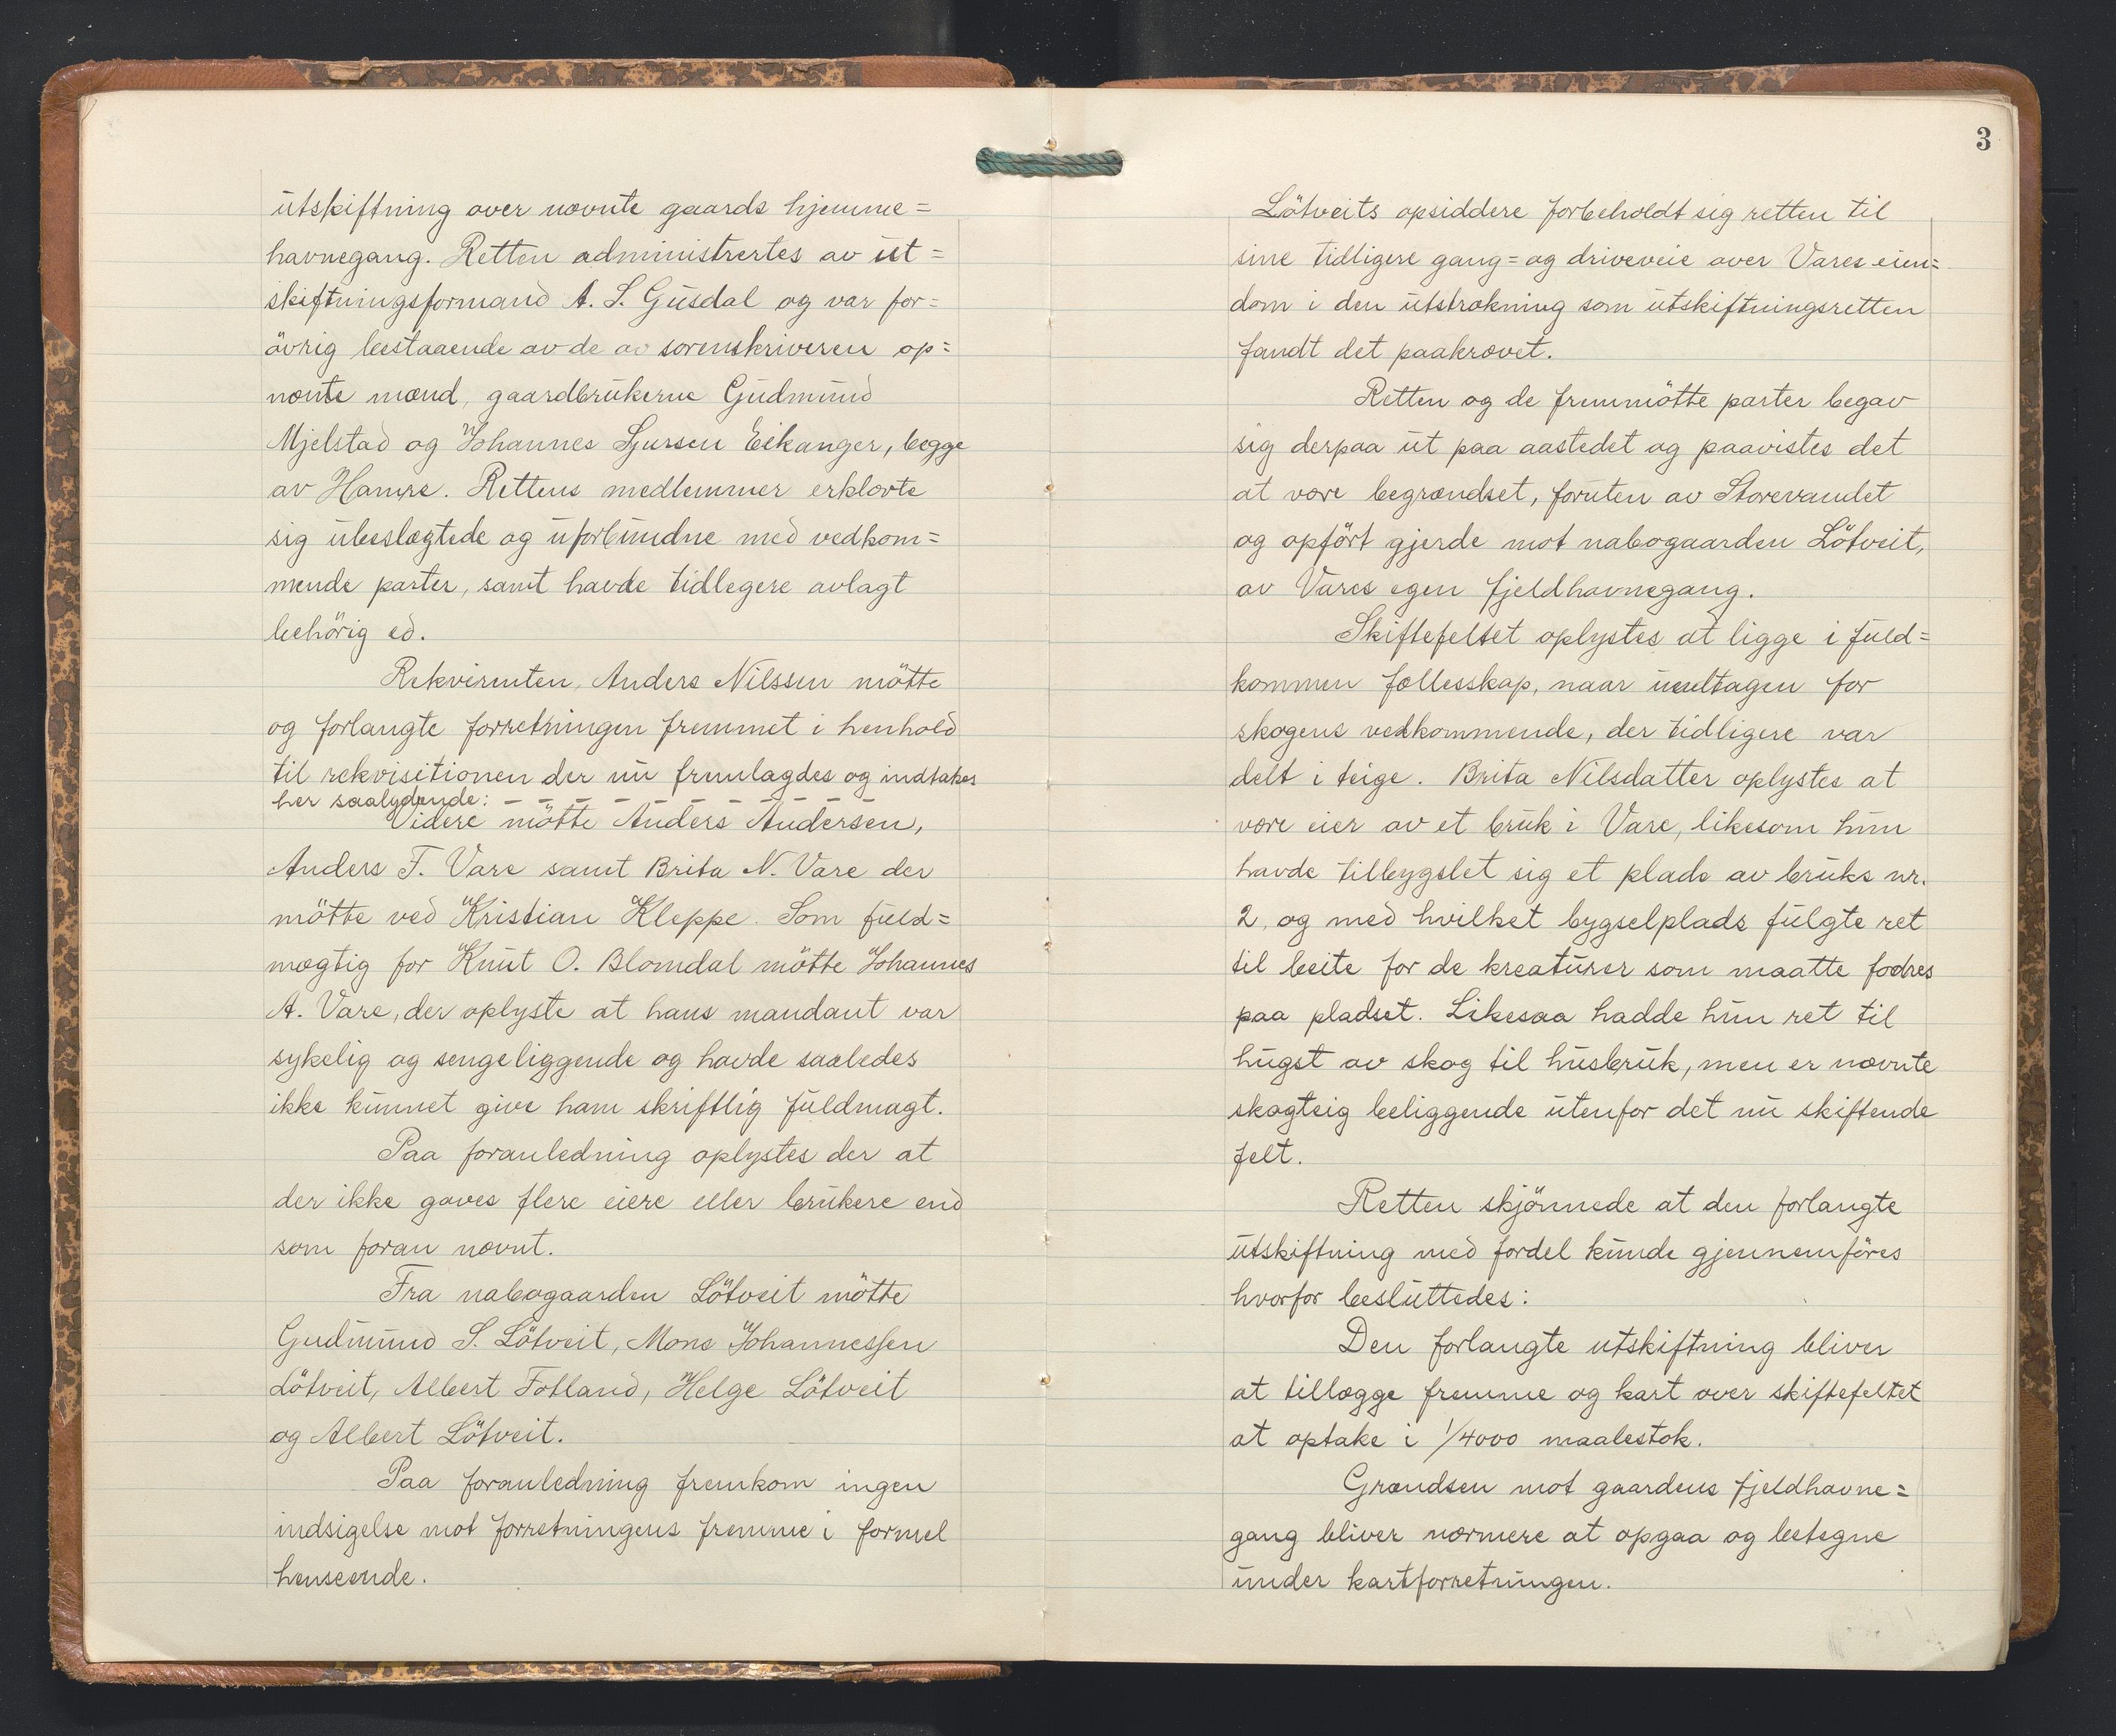 utskiftning over nævnte gaards hjemme=
havnegang. Retten administrertes av ut=
skiftningsformand A. S. Gusdal og var for=
övrig bestaaende av de av sorenskriveren op=
nævnte mænd, gaardbrukerne Gudmund
Mjelstad og Johannes Sjursen Eikanger, begge
av Hamre. Rettens medlemmer erklærte
sig ubeslægtede og uforbundne med vedkom=
mende parter, samt havde tidlegere avlagt
behörig ed.
Rekvirenten, Anders Nilssen mötte
og forlangte forretningen fremmet i henhold
til rekvisitionen der nu fremlagdes og indtakes
her saalydende: – – – – – – – – –
Videre mötte Anders Andersen,
Anders T. Vare samt Brita N. Vare der
mötte ved Kristian Kleppe. Som fuld=
mægtig for Knut O. Blomdal mötte Johannes
A. Vare, der oplyste at hans mandant var
sykelig og sengeliggende og havde saaledes
ikke kunnet give ham skriftlig fuldmagt.
Paa foranledning oplystes der at
der ikke gaves flere eiere eller brukere end
som foran nævnt.
Fra nabogaarden Lötveit mötte
Gudmund S. Lötveit, Mons Johannessen
Lötveit, Albert Fotland, Helge Lötveit
og Albert Lötveit.
Paa foranledning fremkom ingen
indsigelse mot forretningens fremme i formel
henseende.
3
Lötveits opsiddere forbeholdt sig retten til
sine tidligere gang= og driveveie over Vares eien=
dom i den utstrækning som utskiftningsretten
fandt det paakrævet.
Retten og de fremmötte parter begav
sig derpaa ut paa aastedet og paavistes det
at være begrændset, foruten av Storevandet
og opfört gjerde mot nabogaarden Lötveit,
av Vares egen fjeldhavnegang.
Skiftefeltet oplystes at ligge i fuld=
kommen fællesskap, naar undtagen for
skogens vedkommende, der tidligere var
delt i teige. Brita Nilsdatter oplystes at
være eier av et bruk i Vare, likesom hun
havde tilbygslet sig et plads av bruks nr.
2, og med hvilket bygselplads fulgte ret
til beite for de kreaturer som maatte fodres
paa pladset. Likesaa hadde hun ret til
hugst av skog til husbruk, men er nævnte
skogteig beliggende utenfor det nu skiftende
felt.
Retten skjönnede at den forlangte
utskiftning med fordel kunde gjennemföres
hvorfor besluttedes:
Den forlangte utskiftning bliver
at tillægge fremme og kart over skiftefeltet
at optake i 1/4000 maalestok.
Grændsen mot gaardens fjeldhavne=
gang bliver nærmere at opgaa og betegne
under kartforretningen.